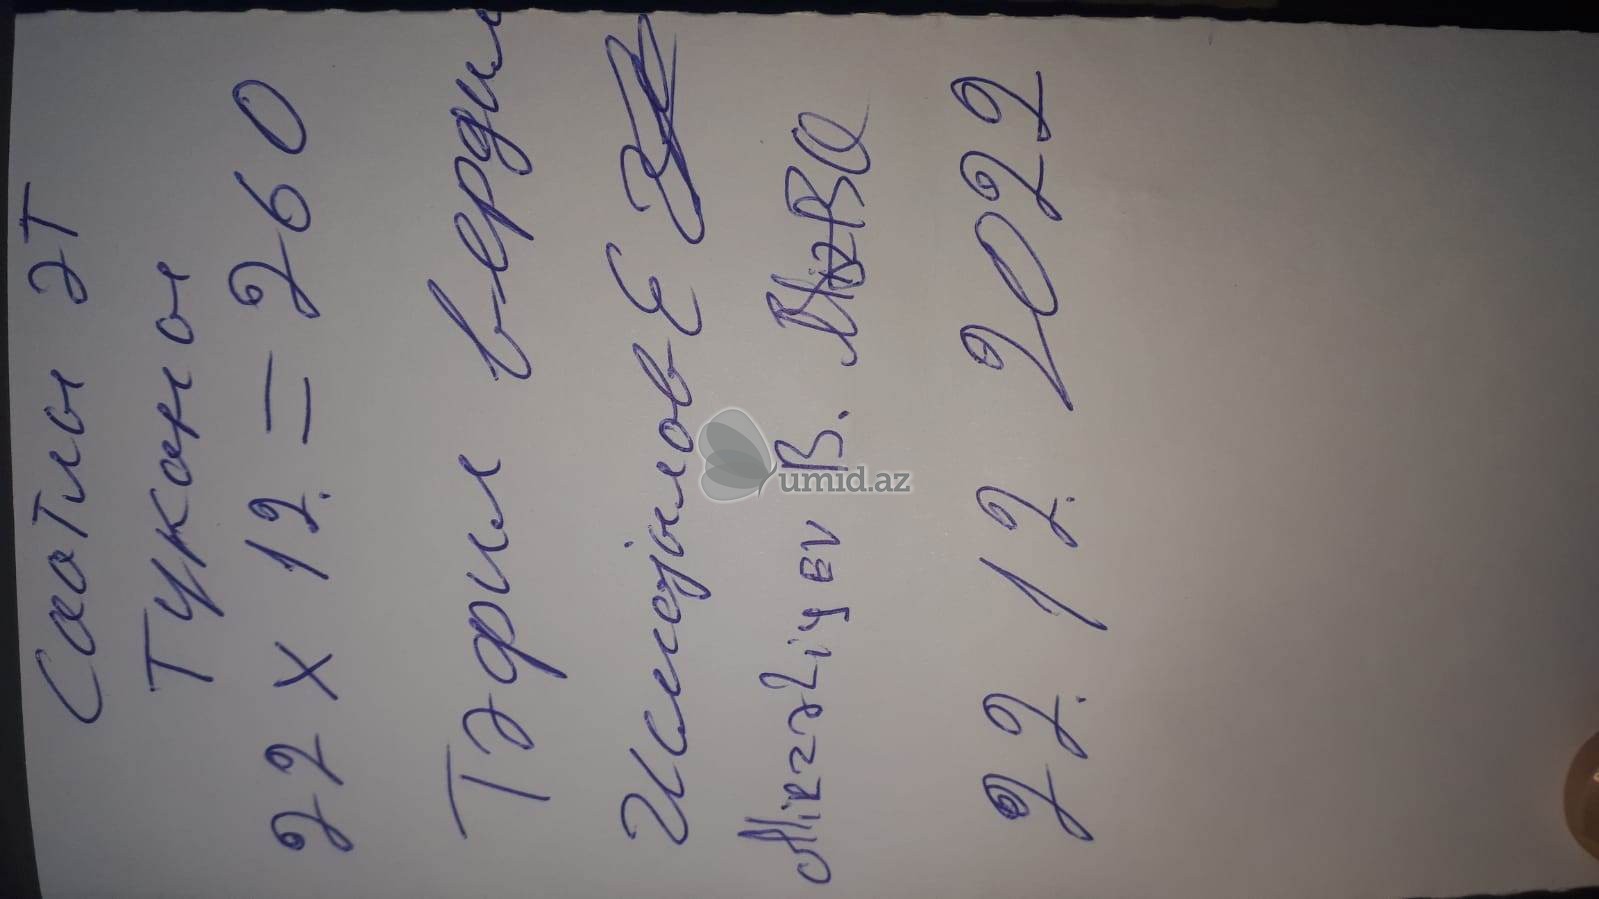 Саатлы әт
Туканы
22 x 12 = 260
Тәфил верди
Исмајылов Е
Mirzəliyev B.
22. 12. 2022
umid.az